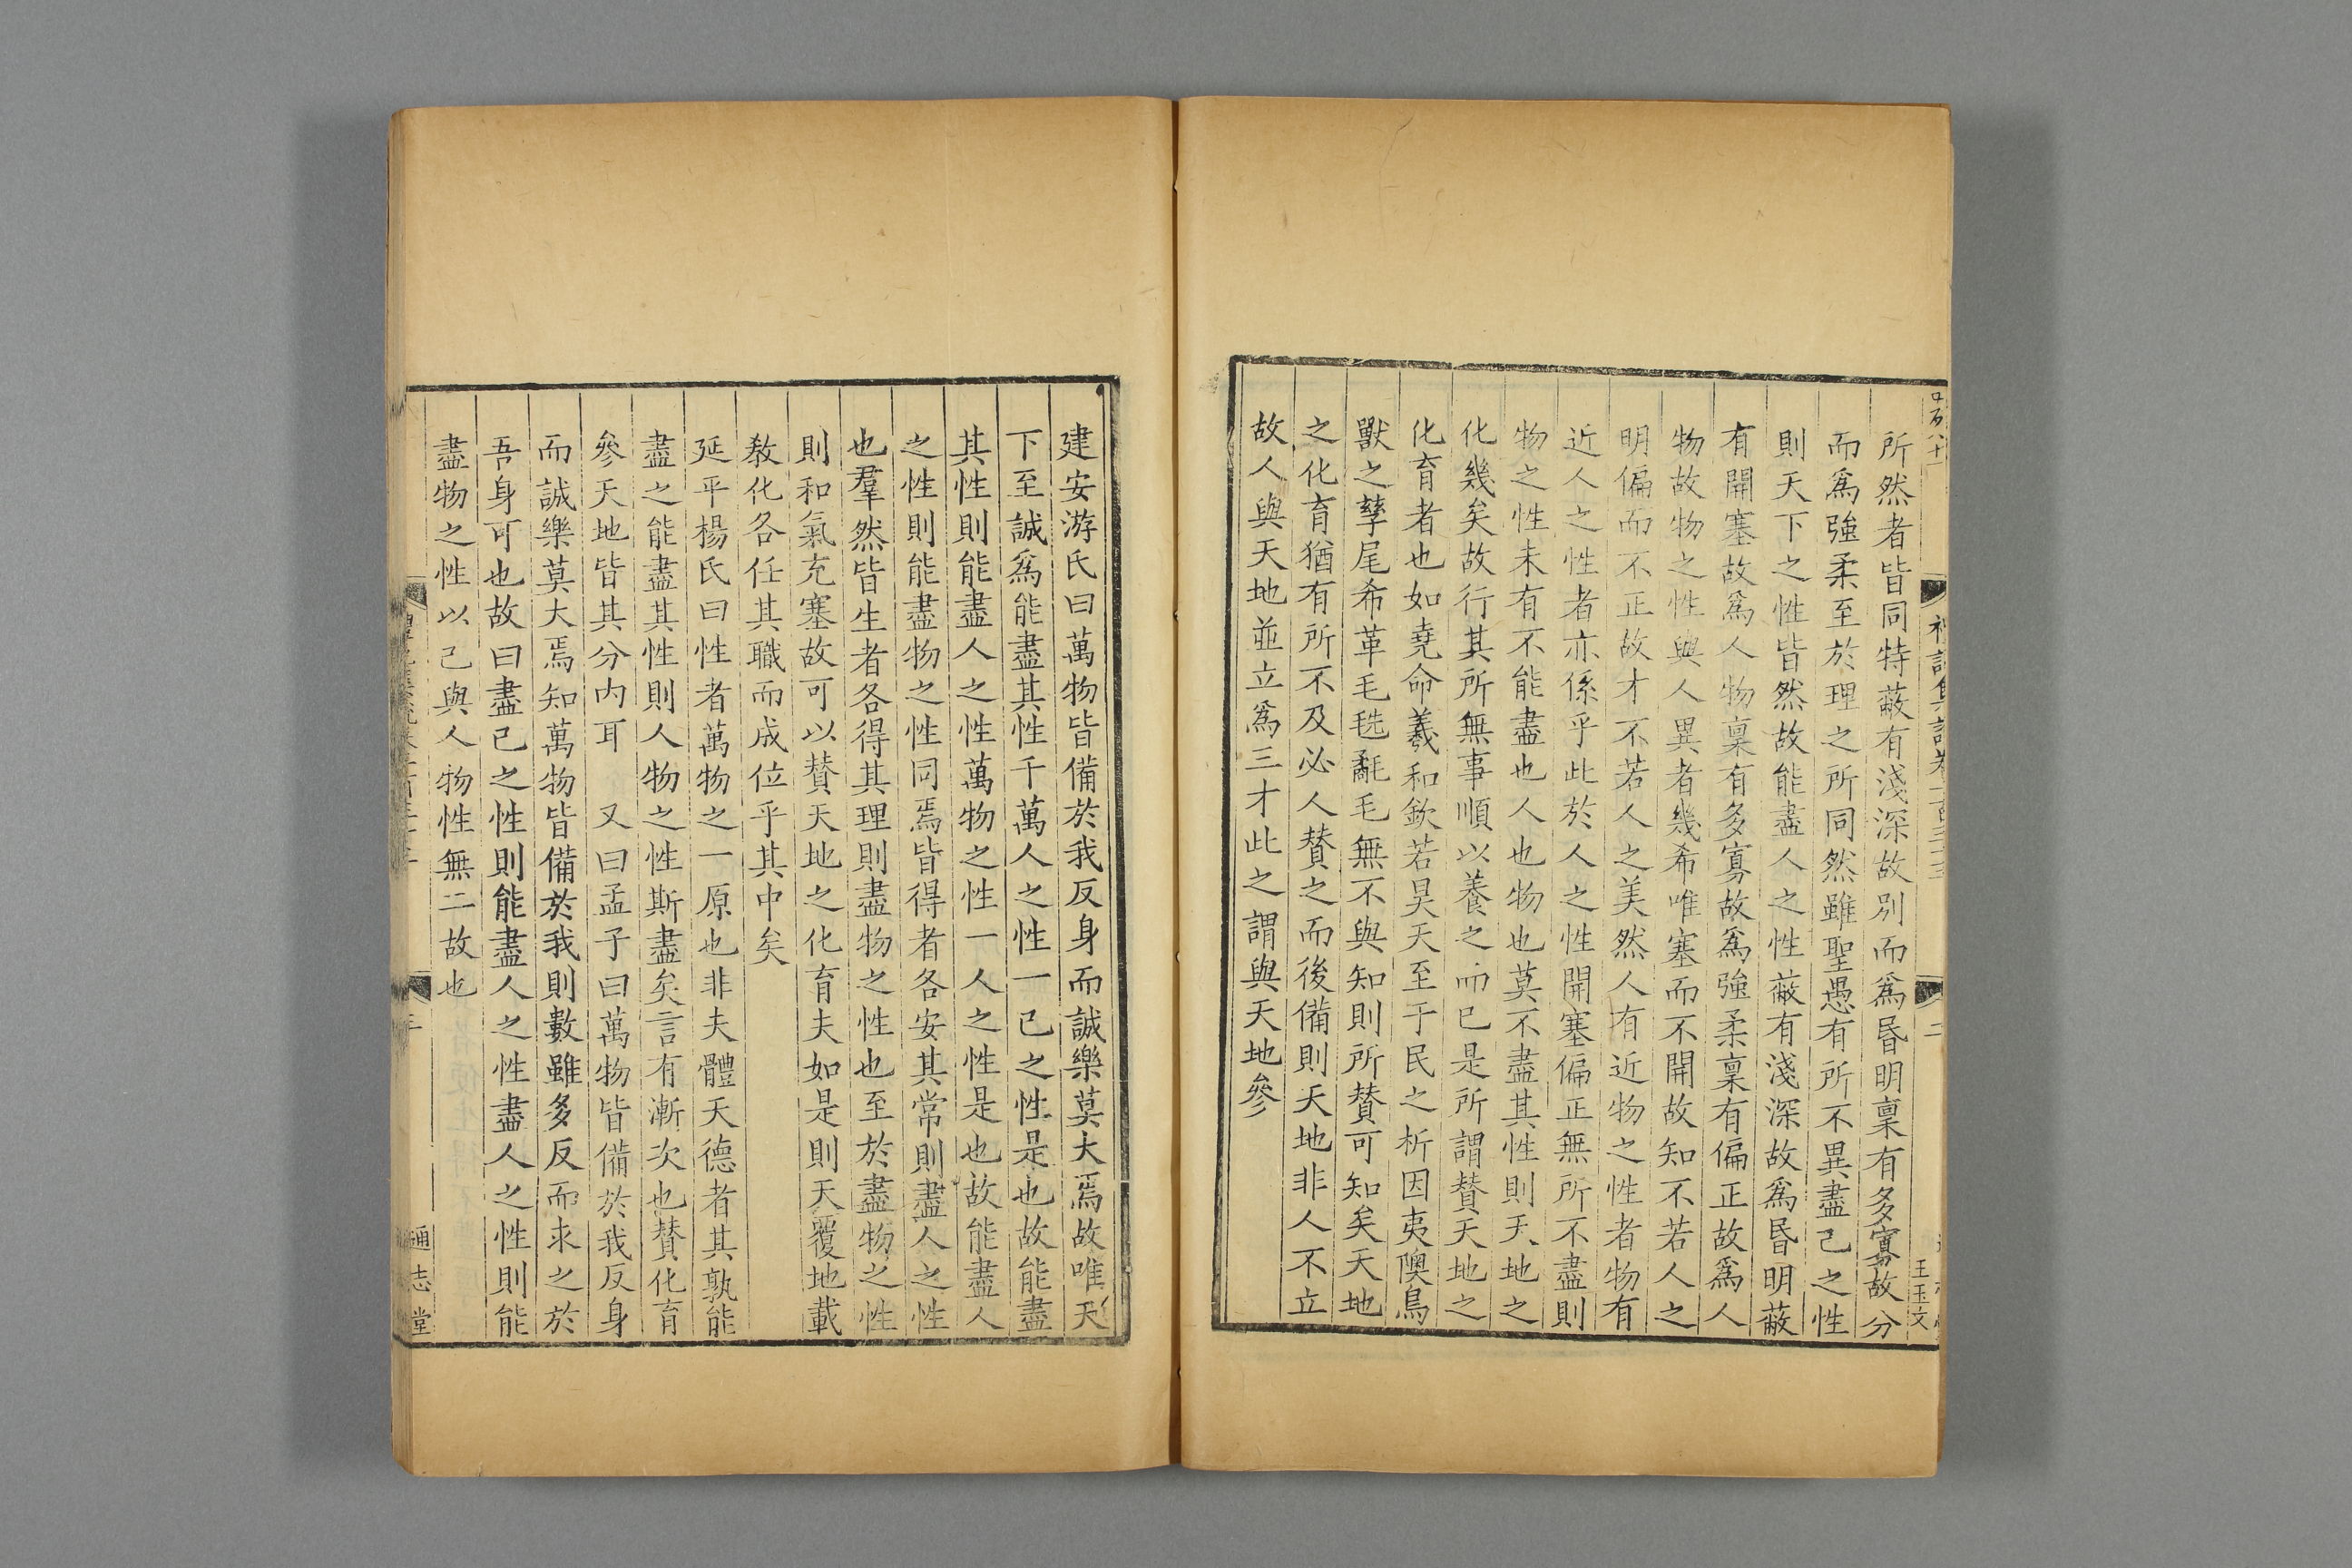 禮記集說卷一百三十三
二
王玉文
所然者皆同特蔽有淺深故別而爲昏明稟有多寡故分
而爲強柔至於理之所同然雖聖愚有所不異盡己之性
則天下之性皆然故能盡人之性蔽有淺深故爲昏明蔽
有開塞故爲人物稟有多寡故爲強柔稟有偏正故爲人
物故物之性與人異者幾希唯塞而不開故知不若人之
明偏而不正故才不若人之美然人有近物之性者物有
近人之性者亦係乎此於人之性開塞偏正無所不盡則
物之性未有不能盡也人也物也莫不盡其性則天地之
化幾矣故行其所無事順以養之而已是所謂贊天地之
化育者也如堯命羲和欽若昊天至于民之析因夷隩鳥
獸之孳尾希革毛毨氄毛無不與知則所贊可知矣天地
之化育猶有所不及必人贊之而後備則天地非人不立
故人與天地並立爲三才此之謂與天地參
建安游氏曰萬物皆備於我反身而誠樂莫大焉故唯天
下至誠爲能盡其性千萬人之性一己之性是也故能盡
其性則能盡人之性萬物之性一人之性是也故能盡人
之性則能盡物之性同焉皆得者各安其常則盡人之性
也羣然皆生者各得其理則盡物之性也至於盡物之性
則和氣充塞故可以贊天地之化育夫如是則天覆地載
敎化各任其職而成位乎其中矣
延平楊氏曰性者萬物之一原也非夫體天德者其孰能
盡之能盡其性則人物之性斯盡矣言有漸次也贊化育
參天地皆其分内耳　又曰孟子曰萬物皆備於我反身
而誠樂莫大焉知萬物皆備於我則數雖多反而求之於
吾身可也故曰盡己之性則能盡人之性盡人之性則能
盡物之性以己與人物性無二故也
通志堂